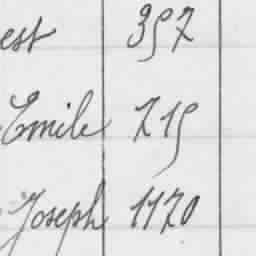 est 357
Emile 715
Joseph 1170